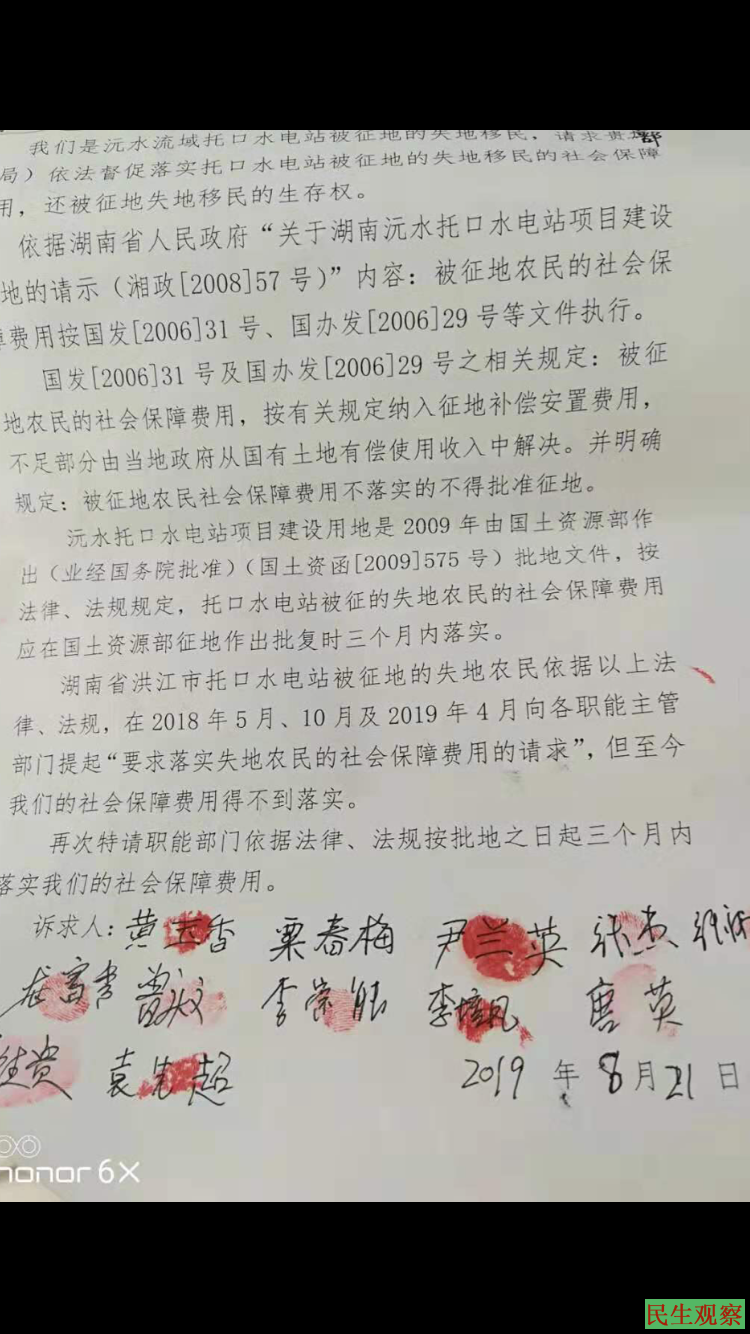 我们是沅水流域托口水电站被征地的失地移民，请求贵部
局）依法督促落实托口水电站被征地的失地移民的社会保障
用，还被征地失地移民的生存权。
依据湖南省人民政府“关于湖南沅水托口水电站项目建设
地的请示（湘政[2008]57号）”内容：被征地农民的社会保
障费用按国发[2006]31号、国办发[2006]29号等文件执行。
国发[2006]31号及国办发[2006]29号之相关规定：被征
地农民的社会保障费用，按有关规定纳入征地补偿安置费用，
不足部分由当地政府从国有土地有偿使用收入中解决。并明确
规定：被征地农民社会保障费用不落实的不得批准征地。
沅水托口水电站项目建设用地是2009年由国土资源部作
出（业经国务院批准）（国土资函[2009]575号）批地文件，按
法律、法规规定，托口水电站被征的失地农民的社会保障费用
应在国土资源部征地作出批复时三个月内落实。
湖南省洪江市托口水电站被征地的失地农民依据以上法
律、法规，在2018年5月、10月及2019年4月向各职能主管
部门提起“要求落实失地农民的社会保障费用的请求”，但至今
我们的社会保障费用得不到落实。
再次特请职能部门依据法律、法规按批地之日起三个月内
落实我们的社会保障费用。
诉求人：黄玉香 栗春梅 尹兰英 张杰
李崇 李 凤 唐英
贵 袁 超 2019年8月21日
honor 6X
民生观察